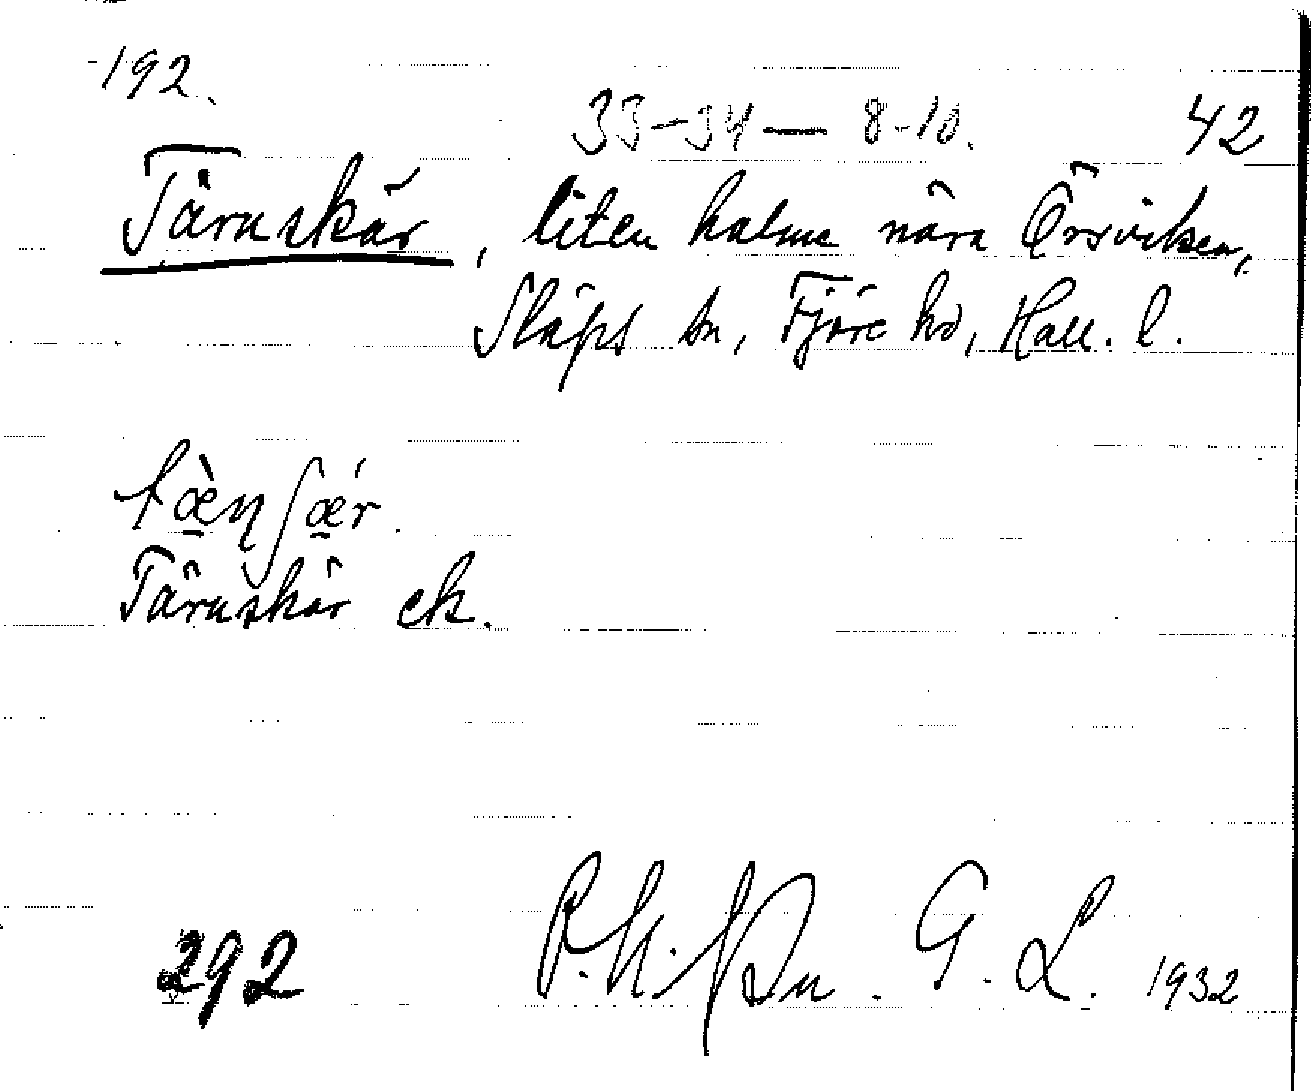 192.
33-34 — 8-10. 42
Tärnskär, liten holme nära Örsviken,
Släps sn, Fjäre hd, Hall. l.
tæ̀ɳʃǽr.
Tärnskär ek.
292 G. L. 1932